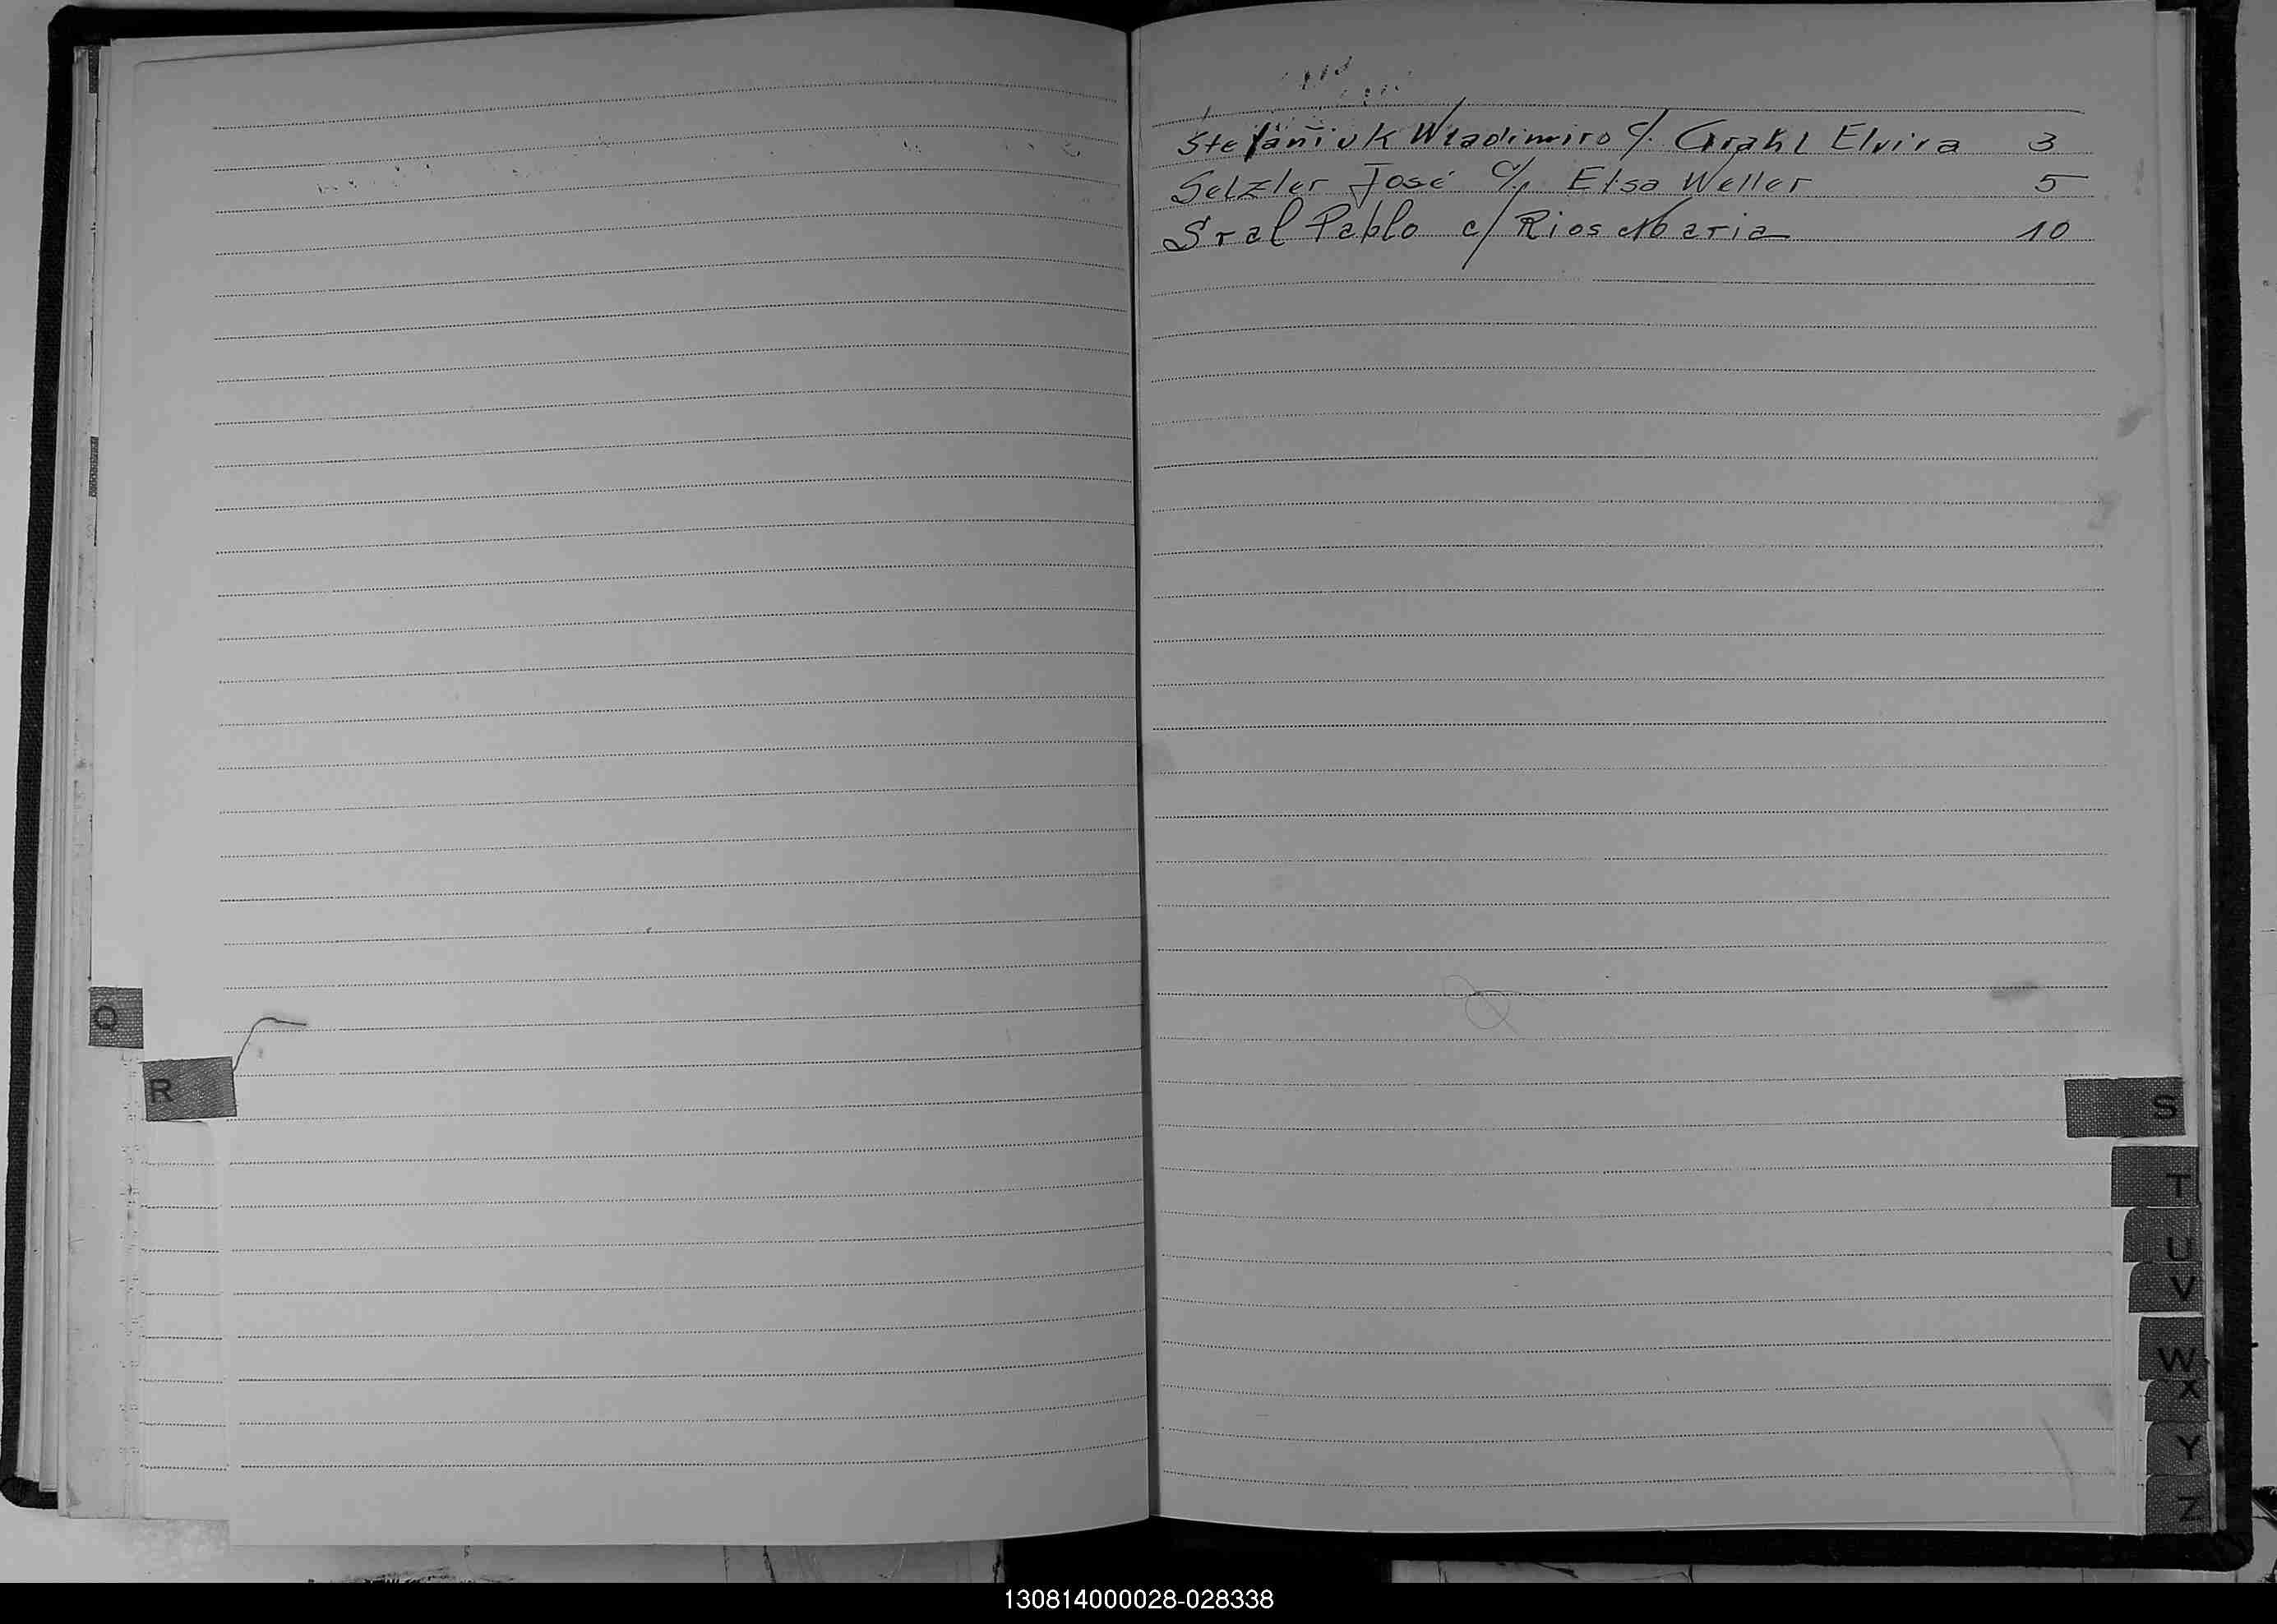 Stefaniuk Wladimiro c/. Grahl Elvira 3
Selzler José c/. Elsa Weller 5
Sral Pablo c/ Rios Maria 10
Q
R
S
T
U
V
W
X
Y
Z
130814000028-028338